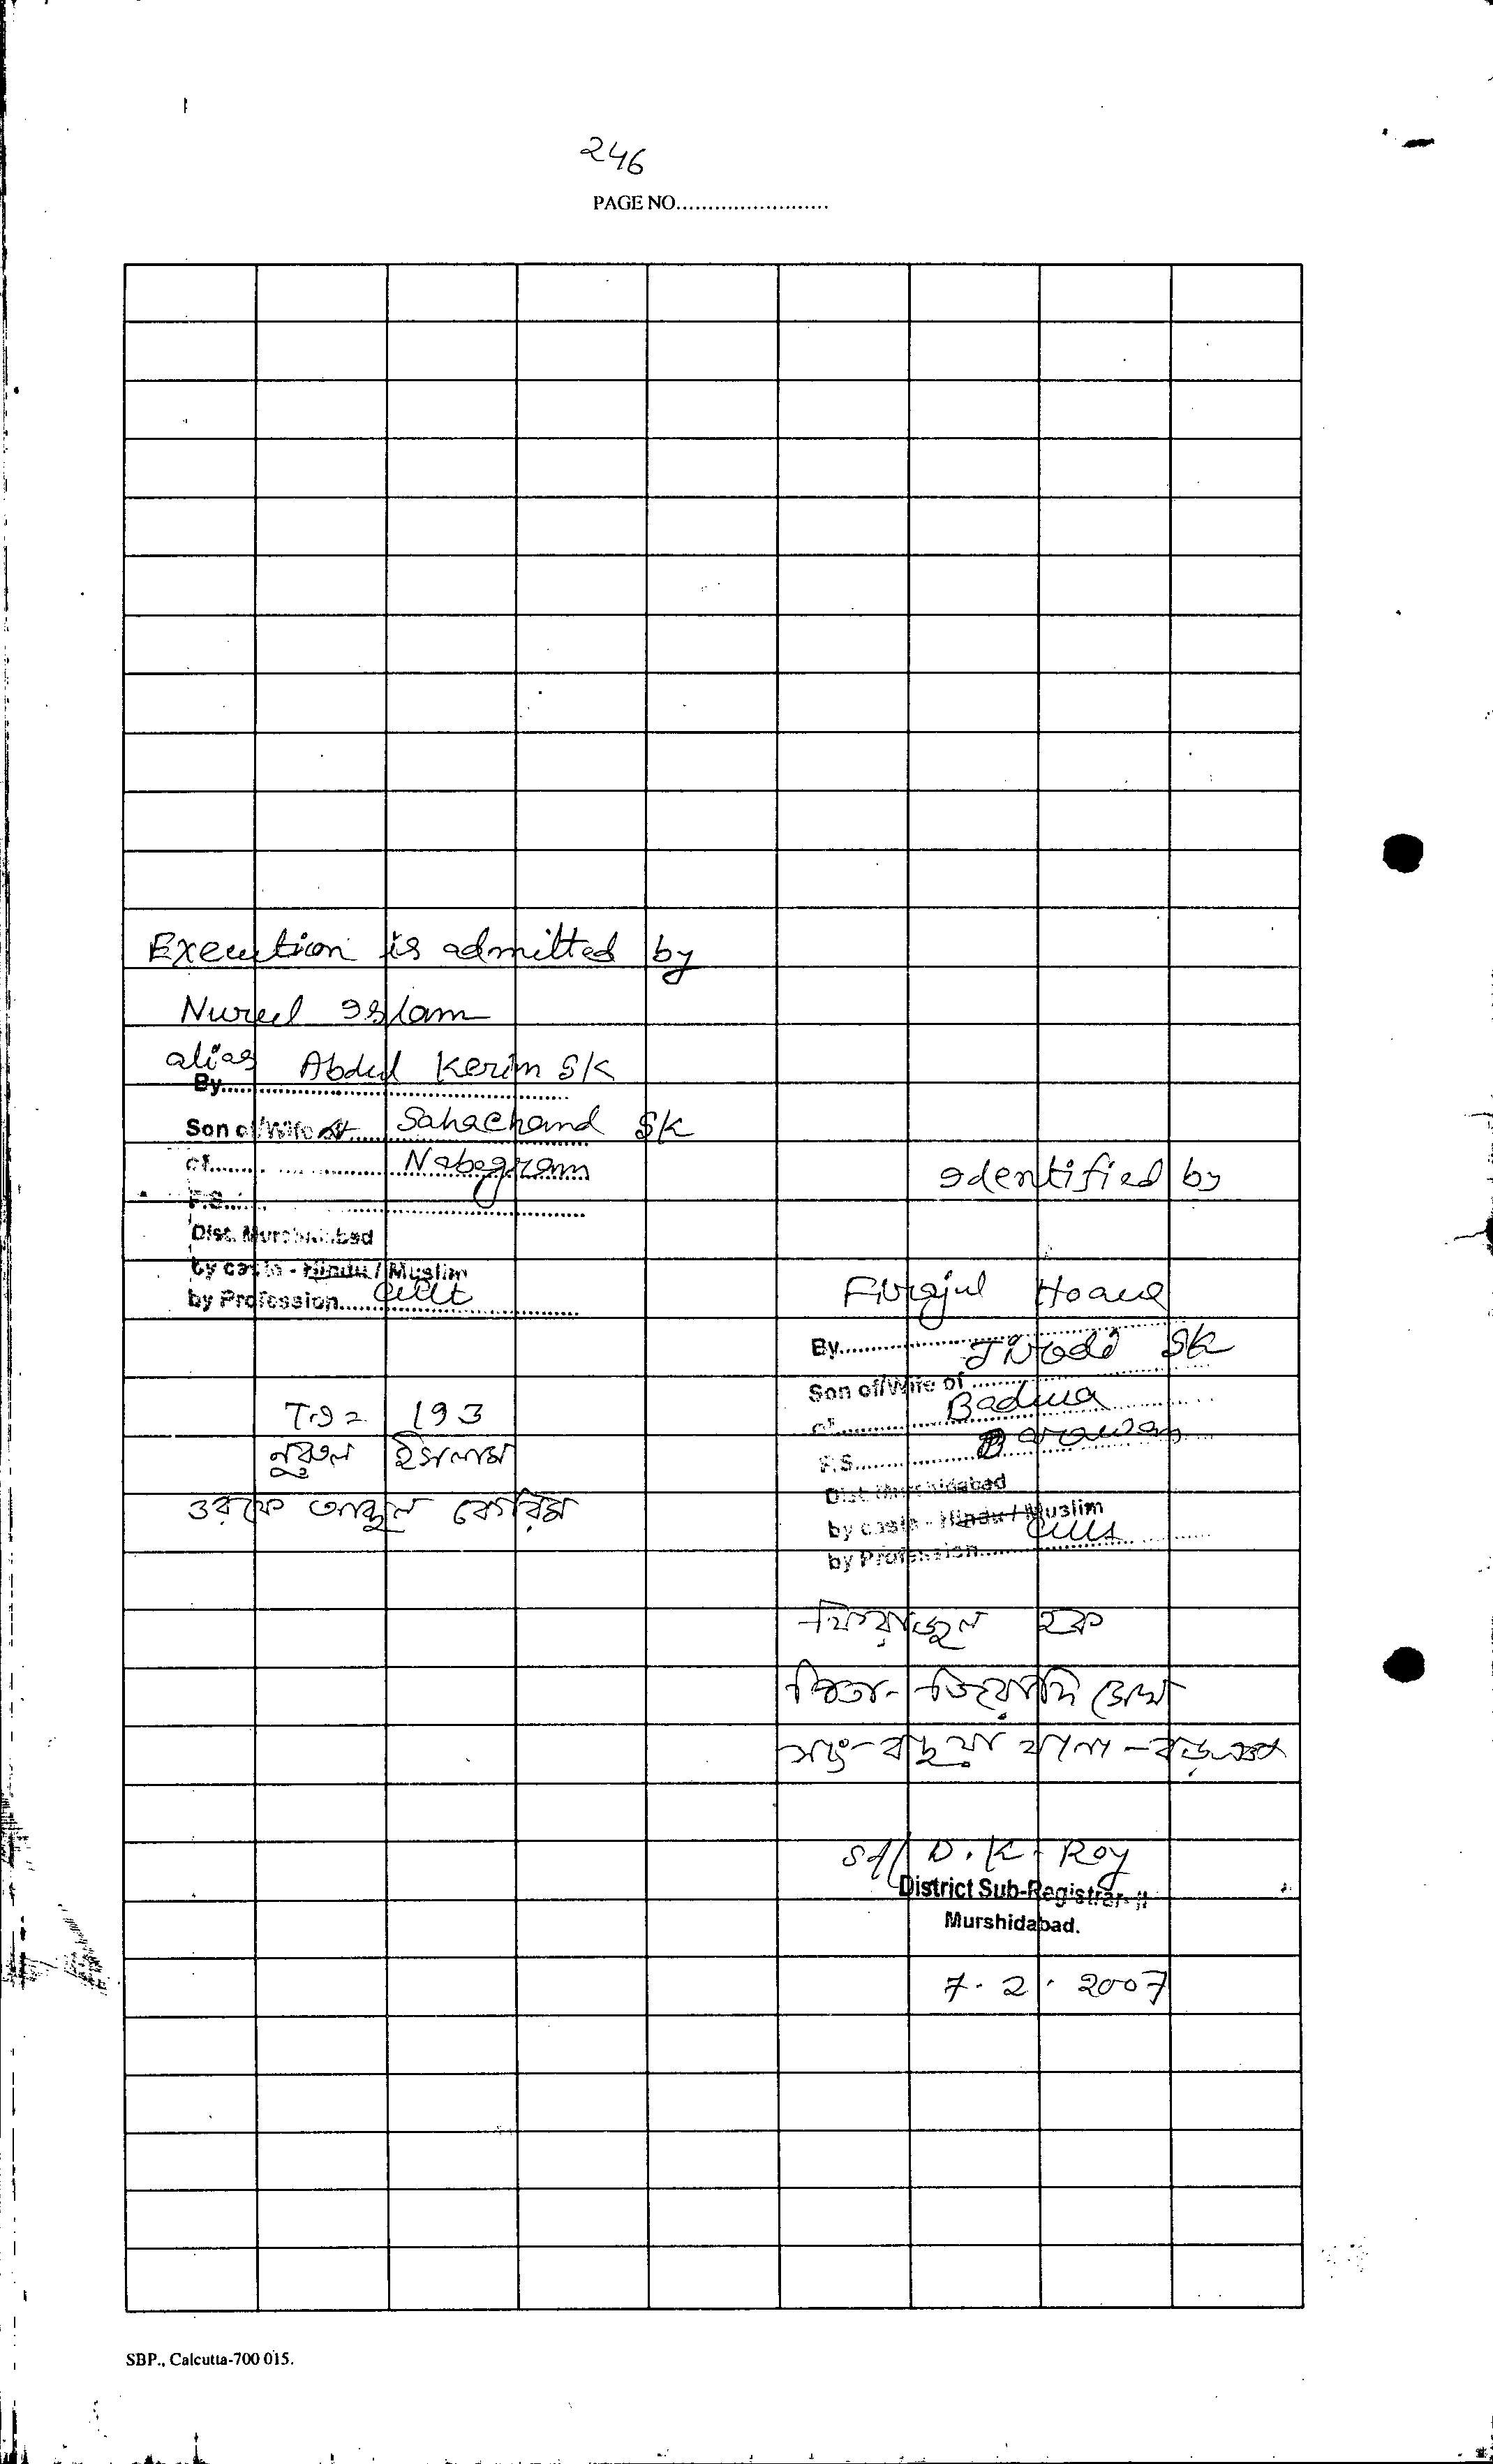 246
PAGE NO........................
Execution is admitted by
Nurul Islam
alias Abdul Kerim SK
By........................
Son of/Wife of Sahachand SK
of........ Nabagram
P.S........
Dist. Murshidabad
by caste - Hindu / Muslim
by Profession........ Cult
T.I = 193
নুরুল ইসলাম
ওরফে আব্দুল কেরিম
Identified by
Firajul Hoaue
By........ Jiyodi SK
Son of/Wife of........
of........ Badua
P.S........ Barawan
Dist. Murshidabad
by caste - Hindu / Muslim
by Profession........ Cult
ফিরাজুল হক
পিতা- জিয়াদি সেখ
সাং- বাদুয়া থানা -
Sd/ D. K. Roy
District Sub-Registrar-II
Murshidabad.
7. 2. 2007
SBP., Calcutta-700 015.